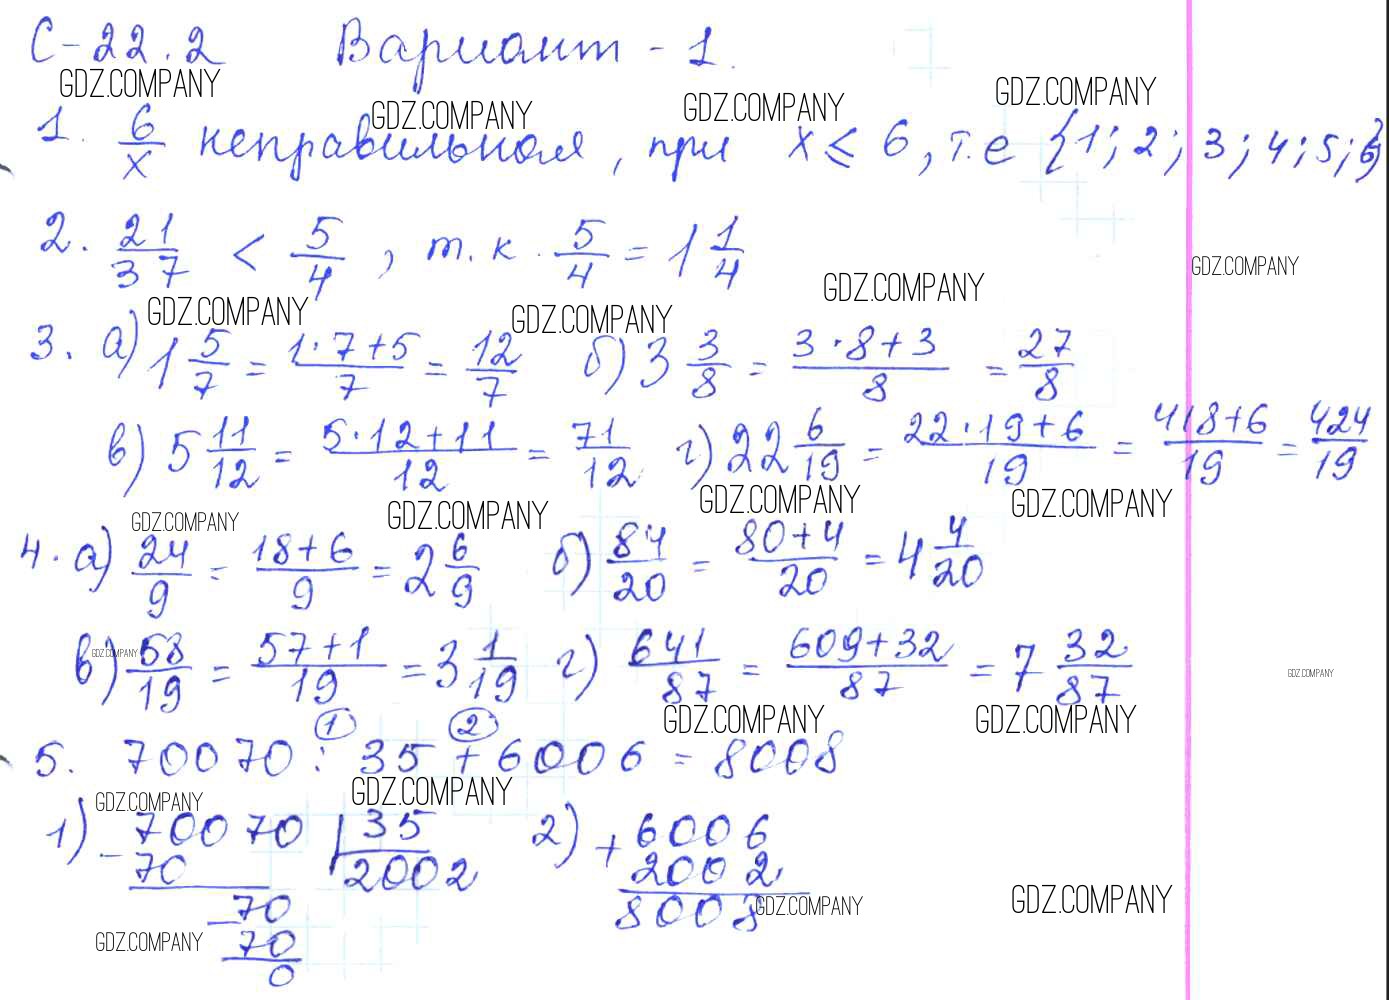 С-22.2 Вариант - 1.
GDZ.COMPANY GDZ.COMPANY GDZ.COMPANY GDZ.COMPANY
1. 6/x неправильная, при x ⩽ 6, т.е {1; 2; 3; 4; 5; 6}
2. 21/37 < 5/4, т.к. 5/4 = 1 1/4
GDZ.COMPANY GDZ.COMPANY GDZ.COMPANY GDZ.COMPANY
3. а) 1 5/7 = (1·7+5)/7 = 12/7 б) 3 3/8 = (3·8+3)/8 = 27/8
в) 5 11/12 = (5·12+11)/12 = 71/12 г) 22 6/19 = (22·19+6)/19 = (418+6)/19 = 424/19
GDZ.COMPANY GDZ.COMPANY GDZ.COMPANY GDZ.COMPANY
4. а) 24/9 = (18+6)/9 = 2 6/9 б) 84/20 = (80+4)/20 = 4 4/20
в) 58/19 = (57+1)/19 = 3 1/19 г) 641/87 = (609+32)/87 = 7 32/87
GDZ.COMPANY GDZ.COMPANY GDZ.COMPANY GDZ.COMPANY
1 2
5. 70070 : 35 + 6006 = 8008
GDZ.COMPANY GDZ.COMPANY
1) 70070 | 35 2) + 6006
- 70 2002 2002
- 70 8008
GDZ.COMPANY GDZ.COMPANY
70
GDZ.COMPANY
0